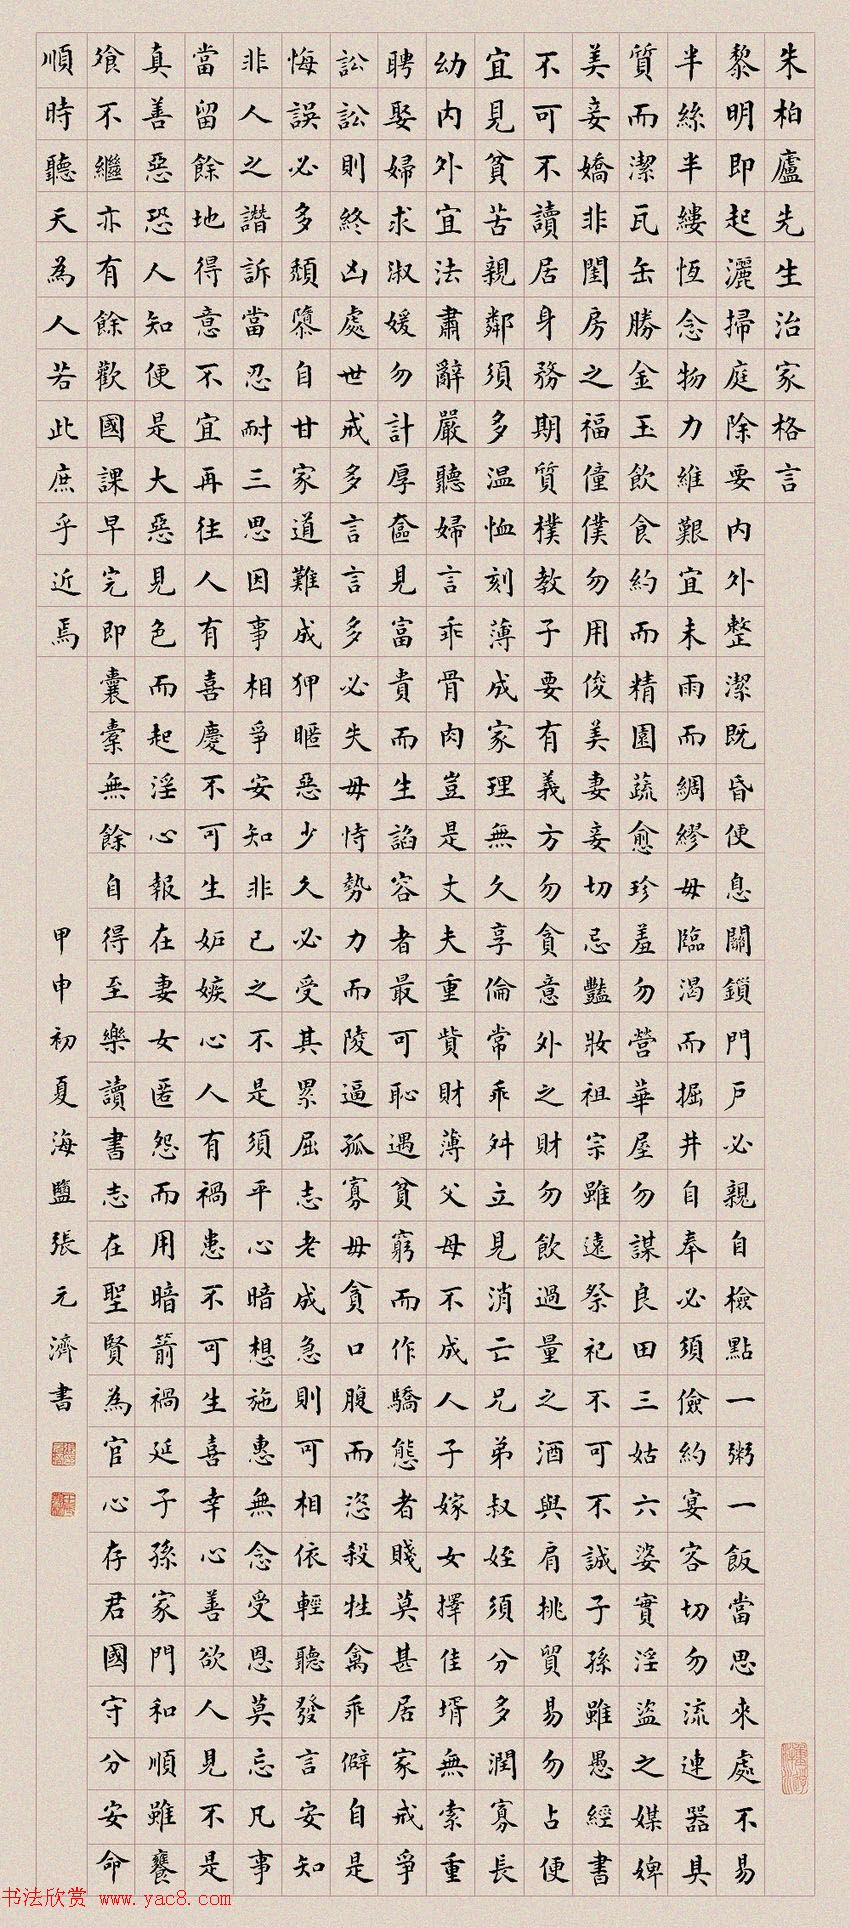 朱柏廬先生治家格言
黎明即起灑掃庭除要內外整潔既昏便息關鎖門戶必親自檢點一粥一飯當思來處不易
半絲半縷恆念物力維艱宜未雨而綢繆毋臨渴而掘井自奉必須儉約宴客切勿流連器具
質而潔瓦缶勝金玉飲食約而精園蔬愈珍羞勿營華屋勿謀良田三姑六婆實淫盜之媒婢
美妾嬌非閨房之福僮僕勿用俊美妻妾切忌豔妝祖宗雖遠祭祀不可不誠子孫雖愚經書
不可不讀居身務期質樸教子要有義方勿貪意外之財勿飲過量之酒與肩挑貿易勿占便
宜見貧苦親鄰須多温恤刻薄成家理無久享倫常乖舛立見消亡兄弟叔姪須分多潤寡長
幼內外宜法肅辭嚴聽婦言乖骨肉豈是丈夫重貲財薄父母不成人子嫁女擇佳壻無索重
聘娶婦求淑媛勿計厚奩見富貴而生諂容者最可恥遇貧窮而作驕態者賤莫甚居家戒爭
訟訟則終凶處世戒多言言多必失毋恃勢力而陵逼孤寡毋貪口腹而恣殺牲禽乖僻自是
悔誤必多頹隳自甘家道難成狎暱惡少久必受其累屈志老成急則可相依輕聽發言安知
非人之譖訴當忍耐三思因事相爭安知非己之不是須平心暗想施惠無念受恩莫忘凡事
當留餘地得意不宜再往人有喜慶不可生妬嫉心人有禍患不可生喜幸心善欲人見不是
真善惡恐人知便是大惡見色而起淫心報在妻女匿怨而用暗箭禍延子孫家門和順雖饔
飧不繼亦有餘歡國課早完即囊橐無餘自得至樂讀書志在聖賢為官心存君國守分安命
順時聽天為人若此庶乎近焉
甲申初夏海鹽張元濟書
书法欣赏 www.yac8.com